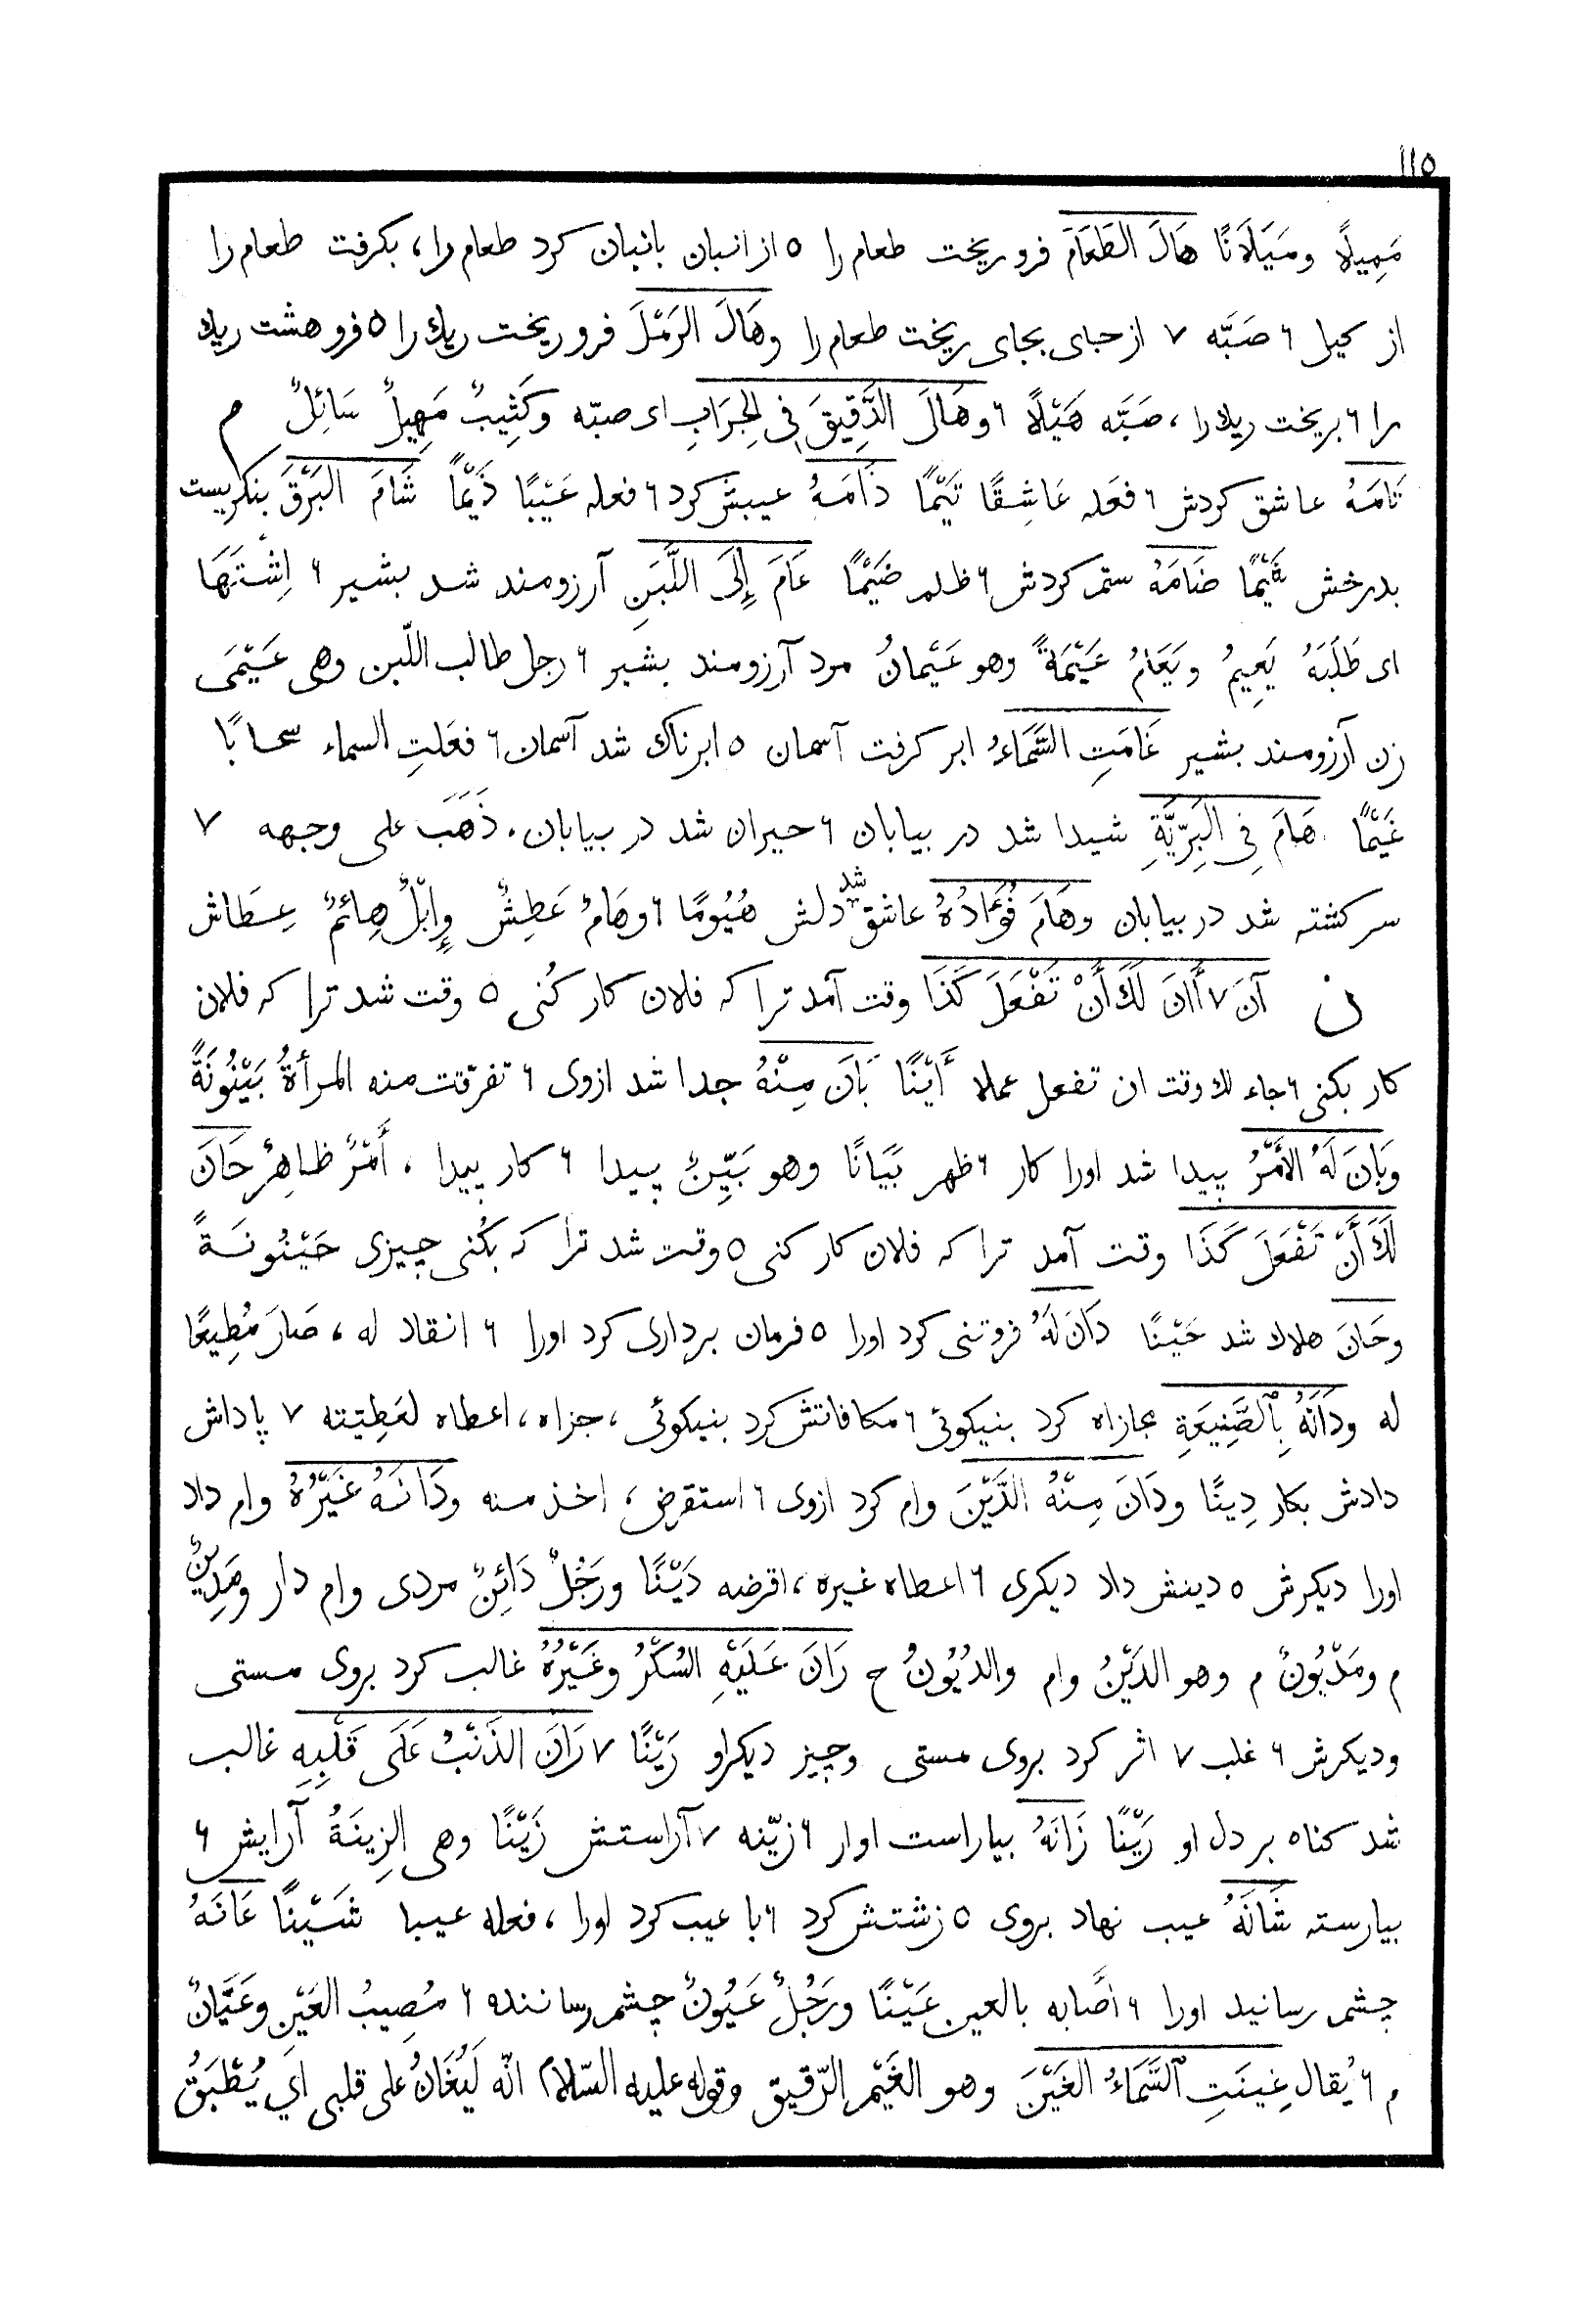 ١١٥
مَمِيلًا ومَيَلَانًا هَالَ الطَعَامَ فرو ریخت طعام را ٥ از انبان بانبان کرد طعام را، بکرفت طعام را
از کیل ٦ صَبَّه ٧ از جای بجای ریخت طعام را وهَالَ الرَمْلَ فرو ریخت ریك را ٥ فرو هشت ریك
را ٦ بریخت ریك را، صَبَّه هَيْلًا ٦ وهَالَ الدَّقِيقَ فِى الجِرَابِ ای صبّه وكَثِيبٌ مَهِيلٌ سَائِلٌ م
تَامَهُ عاشق کردش ٦ فعَله عَاشِقًا تَيْمًا ذَامَهُ عیبش کرد ٦ فعله عَيْبًا ذَيْمًا شَامَ البَرْقَ بنکریست
بدرخش شَيْمًا ضَامَهُ ستم کردش ٦ ظلم ضَيْمًا عَامَ إِلَى اللَّبَنِ آرزومند شد بشیر ٦ اِشْتَهَا
ای طَلَبَهُ يَعِيمُ ويَعَامُ عَيْمَةً وهو عَيْمانُ مرد آرزومند بشیر ٦ رجل طالب اللّبن وهی عَيْمَى
زن آرزومند بشیر غَامَتِ السَّمَاءُ ابر کرفت آسمان ٥ ابرناك شد آسمان ٦ فعَلتِ السماء سحابًا
غَيْمًا هَامَ فِى البَرِّيَّةِ شیدا شد در بیابان ٦ حیران شد در بیابان. ذَهَبَ علی وجهه ٧
سرکشته شد در بیابان وهَامَ فُؤَادُهُ عاشق شد دلش هُيُومًا ٦ وهَامَ عَطِشَ وإِبْلٌ هِائِمٌ عِطَاش
ن آنَ ٧ أَانَ لَكَ أَنْ تَفْعَلَ كَذَا وقت آمد ترا که فلان کار کُنی ٥ وقت شد ترا که فلان
کار بکنی ٦ جاء لك وقت ان تفعل عملا أَيْنًا بَانَ مِنْهُ جدا شد ازوی ٦ تفرّقت منه المرأةُ بَيْنُونَةً
وَبَانَ لَهُ الأَمْرُ پیدا شد اورا کار ٦ ظهر بَيَانًا وهو بَيِّنٌ پیدا ٦ کار پیدا، أَمْرٌ ظاهِرٌ حَانَ
لَكَ أَنْ تَفْعَلَ كَذَا وقت آمد ترا که فلان کار کنی ٥ وقت شد ترا که بکُنی چیزی حَيْنُونَةً
وحَانَ هلاك شد حَيْنًا دَانَ لَهُ فروتنی کرد اورا ٥ فرمان برداری کرد اورا ٦ انقاد له، صَارَ مُطِيعًا
له ودَانَهُ بِالصَّنِيعَةِ مجازاه کرد بنیکوئی ٦ مکافاتش کرد بنیکوئی، جزاه، اعطاه لعَطِيّته ٧ پاداش
دادش بکار دِينًا ودَانَ مِنْهُ الدَّيْنَ وام کرد ازوی ٦ استقرض، اخذ منه ودَانَهُ غَيْرُهُ وام داد
اورا دیکرش ٥ دینش داد دیکری ٦ اعطاه غیره، اقرضه دَيْنًا ورَجُلٌ دَائِنٌ مردی وام دار ومَدِينٌ
م ومَدْيُونٌ م وهو الدَيْنُ وام والدُيُونُ ج رَانَ عَلَيْهِ السُكْرُ وغَيْرُهُ غالب کرد بروی مستی
ودیکرش ٦ غلب ٧ اثر کرد بروی مستی وچیز دیکراو رَيْنًا ٧ رَانَ الذَنْبُ عَلَى قَلْبِهِ غالب
شد کناه بر دل او رَيْنًا زَانَهُ بیاراست اوار ٦ زیّنه ٧ آراستش زَيْنًا وهی الزِينَةُ آرایش ٦
بیارسته شَانَهُ عیب نهاد بروی ٥ زشتش کرد ٦ با عیب کرد اورا، فعله عیبا شَيْنًا عَانَهُ
چشم رسانید اورا ٦ أصَابه بالعین عَيْنًا ورَجُلٌ عَيُونٌ چشم رساننده ٦ مُصِيبُ العَيْنِ وعَيَّانٌ
م ٦ يُقال غِينَتِ السَّمَاءُ الغَيْنَ وهو الغَيْم الرّقيق وقوله عليه السّلام انّه لَيُغَانُ على قلبى اَي يُطْبَقُ